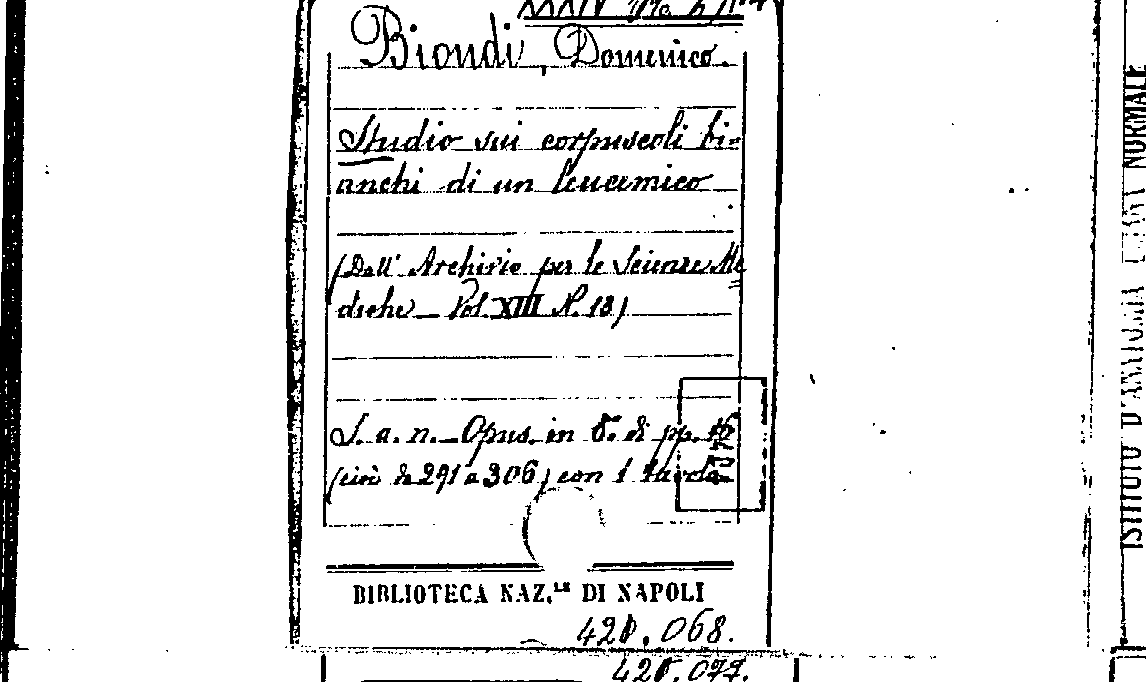 XXXIV
Biondi, Domenico.
Studio sui corpuscoli bi=
anchi di un leucemico
(Dall' Archivio per le Scienze Me
diche — Vol. XIII N. 13)
S. a. n. — Opus. in 8.° di pp. 16
(cioè da 291 a 306) con 1 tavola
BIBLIOTECA NAZ.LE DI NAPOLI
068.
077.
ISTITUTO D'ANATOMIA UMANA NORMALE